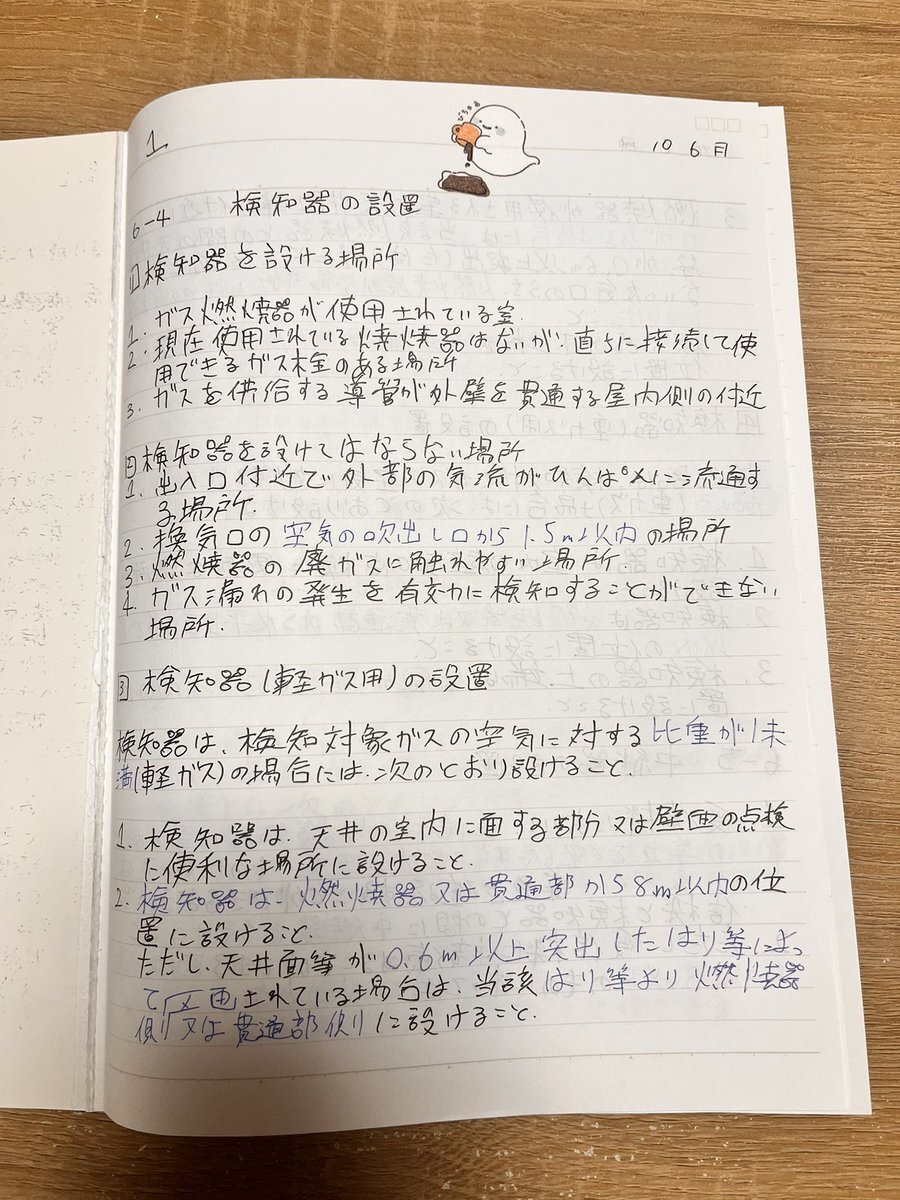 1
10 6 月
6-4 検知器の設置
[1] 検知器を設ける場所
1. ガス燃焼器が使用されている室.
2. 現在使用されている焼焼器はないが、直ちに接続して使
用できるガス栓のある場所
3. ガスを供給する導管が外壁を貫通する屋内側の付近
[2] 検知器を設けてはならない場所
1. 出入口付近で外部の気流がひんぱんに流通す
る場所.
2. 換気口の空気の吹出し口から1.5m以内の場所
3. 燃焼器の廃ガスに触れやすい場所.
4. ガス漏れの発生を有効に検知することができない
場所.
[3] 検知器(軽ガス用)の設置
検知器は、検知対象ガスの空気に対する比重が1未
満(軽ガス)の場合には、次のとおり設けること.
1. 検知器は、天井の室内に面する部分又は壁面の点検
に便利な場所に設けること.
2. 検知器は、燃焼器又は貫通部から8m以内の位
置に設けること.
ただし、天井面等が0.6m以上突出したはり等によっ
て区画されている場合は、当該はり等より燃焼器
側又は貫通部側に設けること.